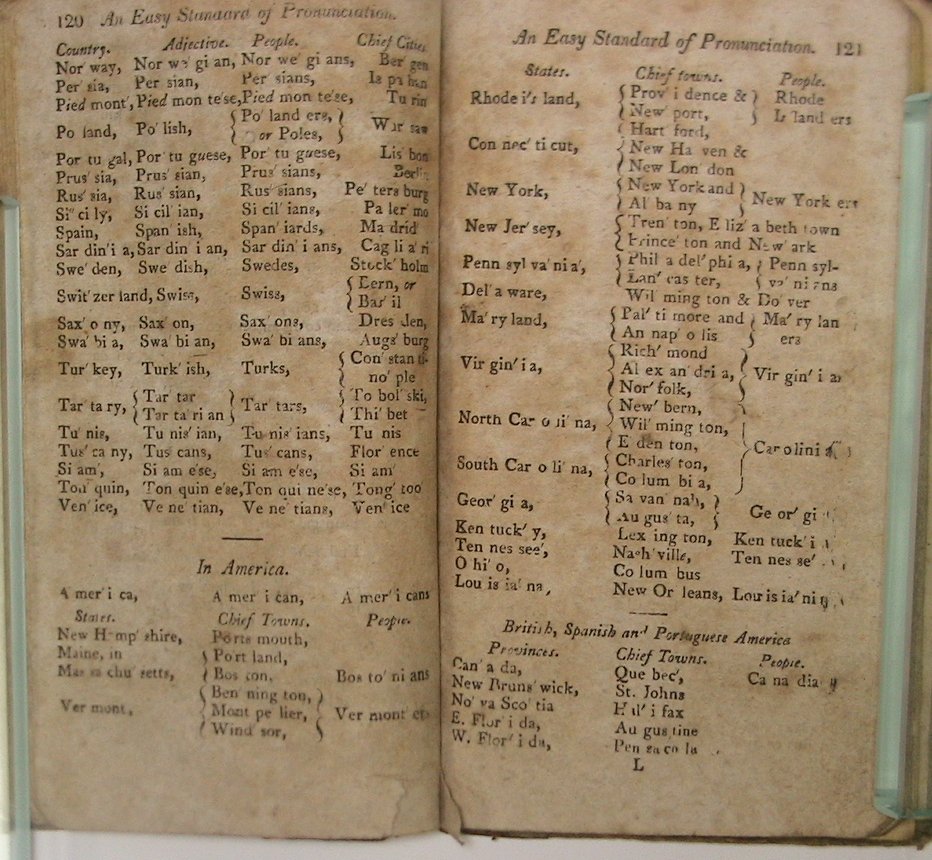 120 An Easy Standard of Pronunciation.
Country. Adjective. People. Chief Cities
Nor way, Nor we' gi an, Nor we' gi ans, Ber' gen
Per' sia, Per' sian, Per' sians, Is pa han
Pied mont', Pied mon te'se, Pied mon te'se, Tu rin
Po land, Po' lish, { Po' land ers, } War' saw
{ or Poles, }
Por tu gal, Por' tu guese, Por' tu guese, Lis' bon
Prus' sia, Prus' sian, Prus' sians, Berlin
Rus' sia, Rus' sian, Rus' sians, Pe' ters burg
Si'' ci ly, Si cil' ian, Si cil' ians, Pa ler' mo
Spain, Span' ish, Span' iards, Ma drid'
Sar din' i a, Sar din' i an, Sar din' i ans, Cag li a' ri
Swe' den, Swe' dish, Swedes, Stock' holm
Swit' zer land, Swiss, Swiss, { Bern, or
{ Bas' il
Sax' o ny, Sax' on, Sax' ons, Dres' den,
Swa' bi a, Swa' bi an, Swa' bi ans, Augs' burg
Tur' key, Turk' ish, Turks, { Con' stan ti-
{ no' ple
Tar' ta ry, { Tar' tar } Tar' tars, { To bol' ski,
{ Tar ta' ri an } { Thi' bet
Tu' nis, Tu nis' ian, Tu nis' ians, Tu nis
Tus' ca ny, Tus' cans, Tus' cans, Flor' ence
Si am', Si am e'se, Si am e'se, Si am'
Ton' quin, Ton quin e'se, Ton qui ne'se, Tong' too
Ven' ice, Ve ne' tian, Ve ne' tians, Ven' ice
In America.
A mer' i ca, A mer' i can, A mer' i cans
States. Chief Towns. People.
New Hamp' shire, Ports mouth,
Maine, in { Port land,
Mas sa chu' setts, { Bos ton, Bos to' ni ans
Ver mont, { Ben' ning ton, }
{ Mont pe lier, } Ver mont' ers
{ Wind' sor, }
An Easy Standard of Pronunciation. 121
States. Chief towns. People.
Rhode i's land, { Prov' i dence & } Rhode
{ New' port, } I's land ers
Con nec' ti cut, { Hart' ford,
{ New Ha ven &
{ New Lon don
New York, { New York and } New York ers
{ Al' ba ny }
New Jer' sey, { Tren' ton, E liz' a beth town
{ Prince' ton and New' ark
Penn syl va' ni a', { Phil a del' phi a, } Penn syl-
{ Lan' cas ter, } va' ni ans
Del' a ware, Wil ming ton & Do' ver
Ma' ry land, { Bal' ti more and } Ma' ry lan
{ An nap' o lis } ers
Vir gin' i a, { Rich' mond
{ Al ex an' dri a, } Vir gin' i an
{ Nor' folk,
North Car o li' na, { New' bern,
{ Wil' ming ton,
{ E den ton, } Car o lini
South Car o li' na, { Charles' ton,
{ Co lum bi a,
Geor' gi a, { Sa van' nah, } Ge or' gi
{ Au gus' ta, }
Ken tuck' y, Lex ing ton, Ken tuck' i
Ten nes see', Nash' ville, Ten nes se'
O hi' o, Co lum bus
Lou is ia' na, New Or leans, Lou is ia' ni
British, Spanish and Portuguese America
Provinces. Chief Towns. People.
Can' a da, Que bec', Ca na dia
New Bruns' wick, St. Johns
No' va Sco' tia Hal' i fax
E. Flor' i da, Au gus tine
W. Flor' i da, Pen sa co la
L